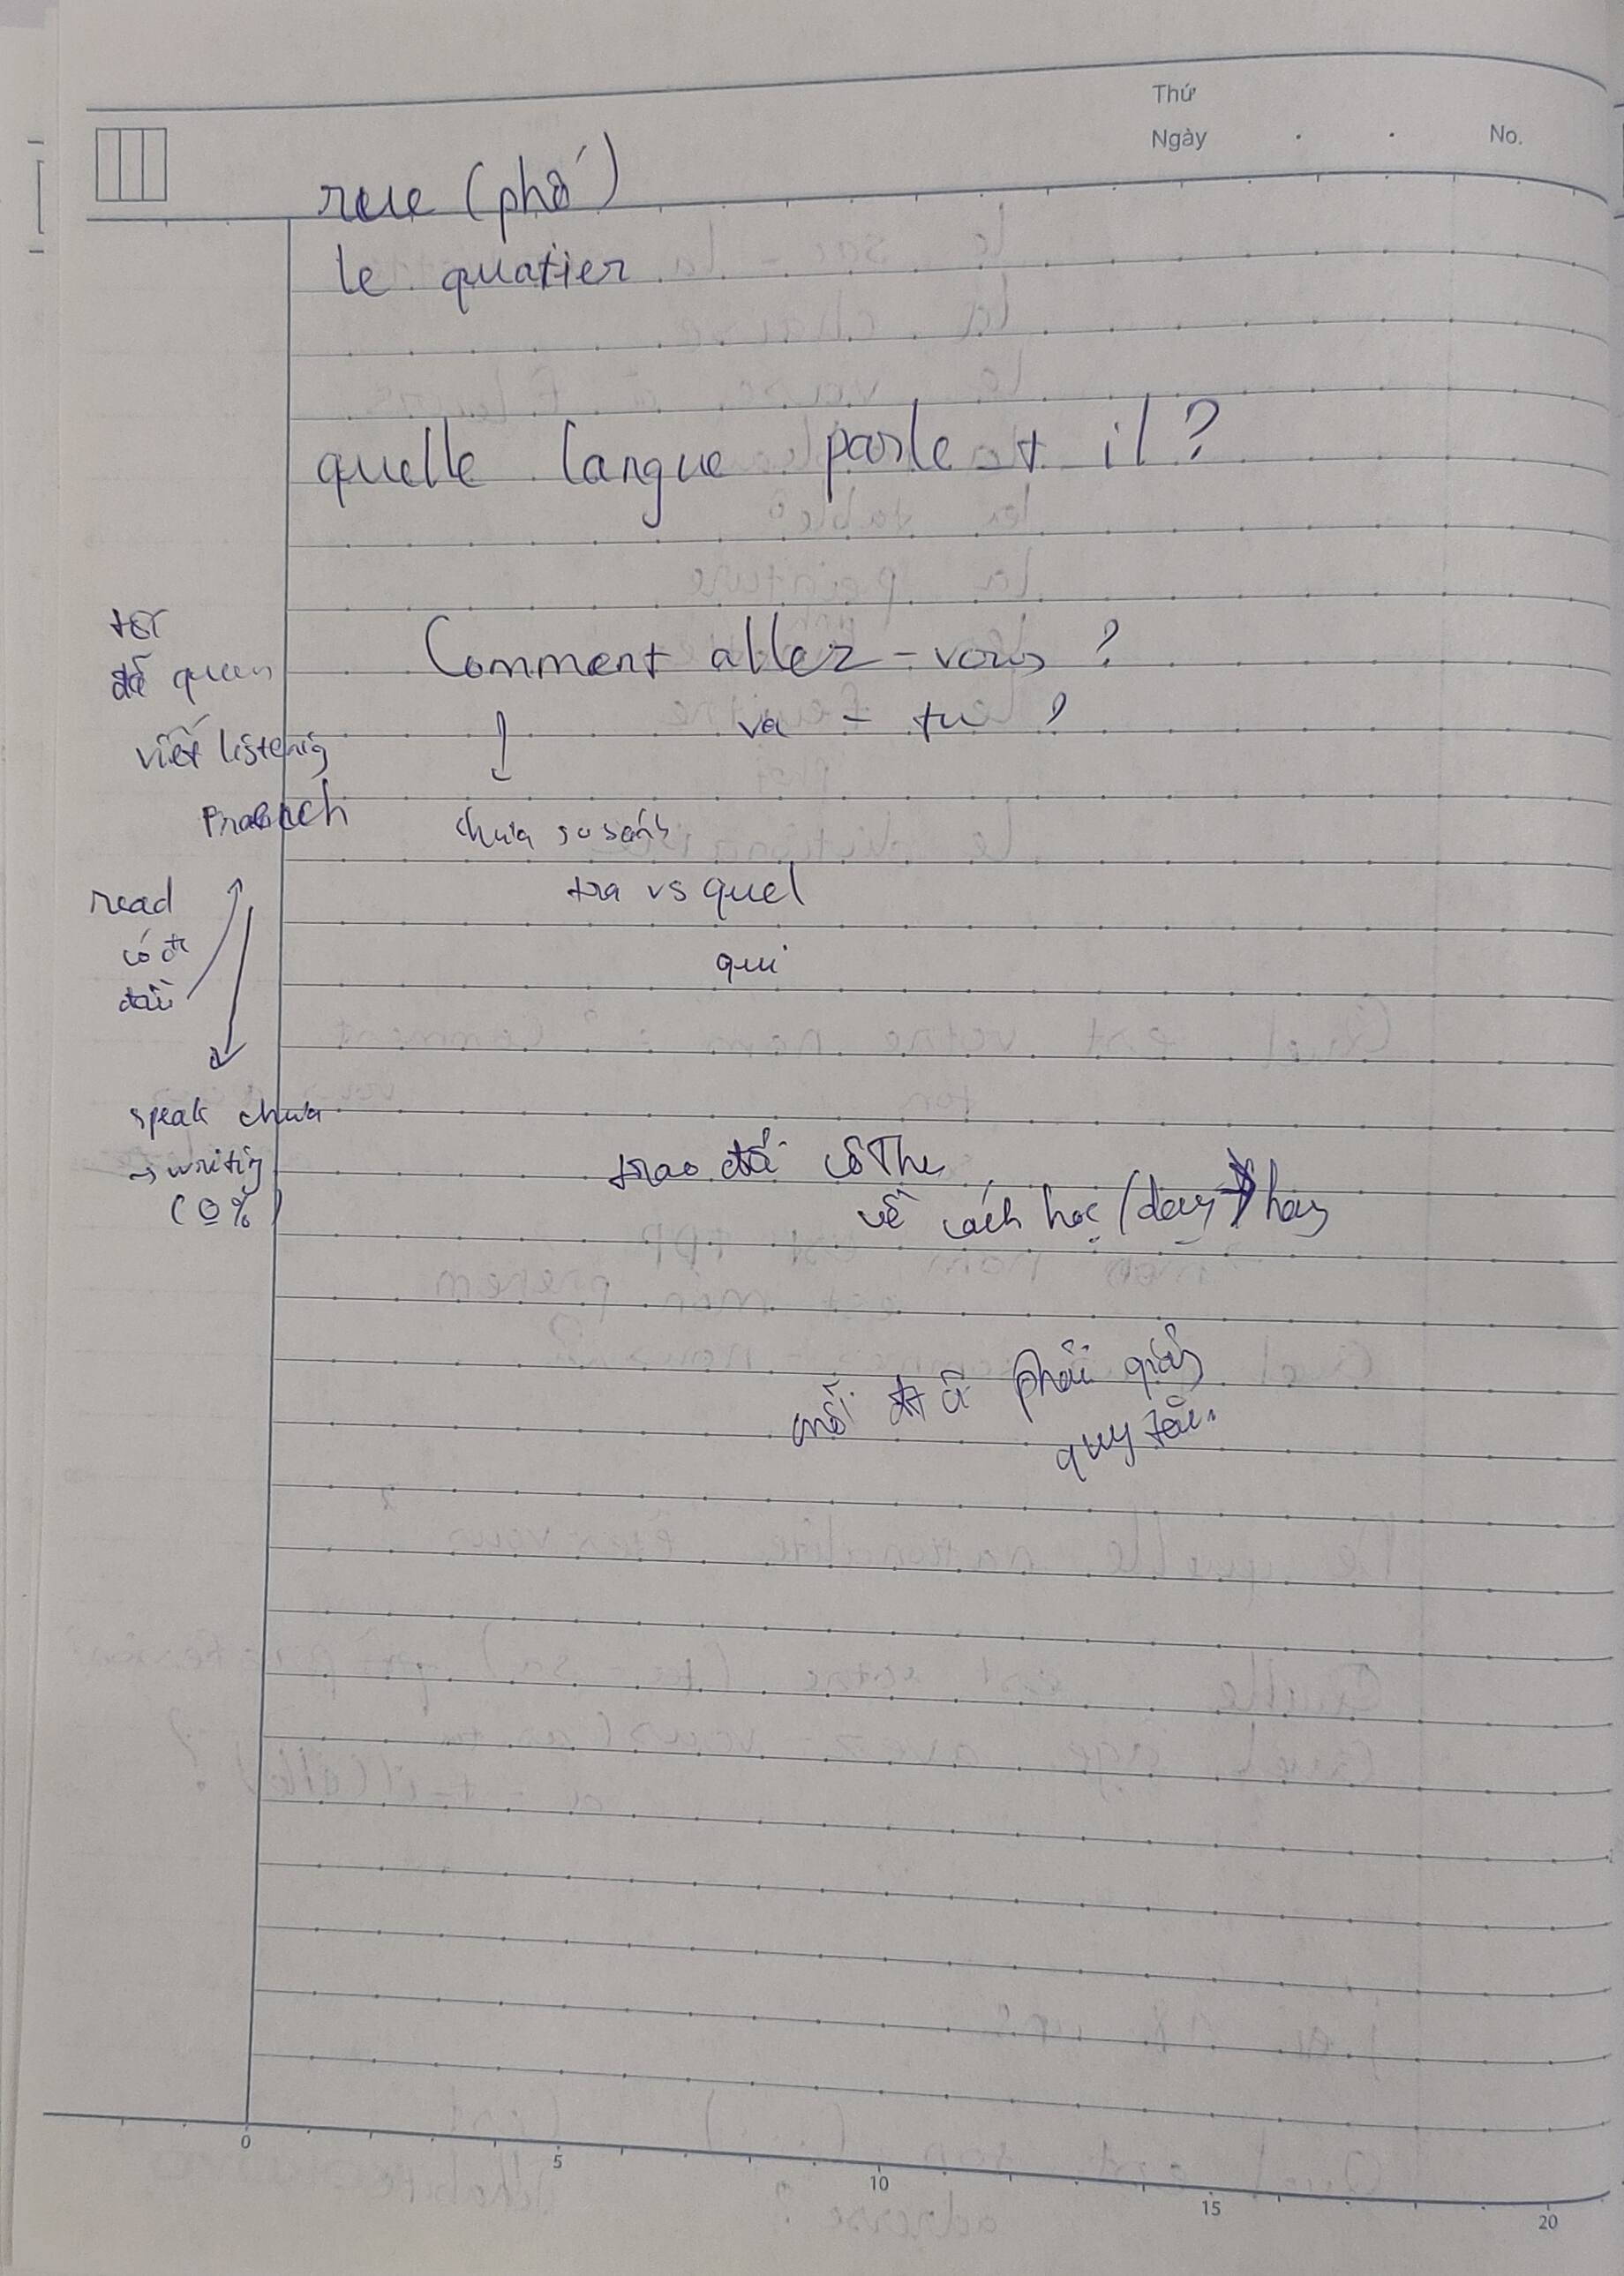 Thứ
Ngày . . No.
rue (phố)
le quatier
quelle langue parle t il ?
Comment allez - vous ?
va - tu ?
chưa so sánh
tra vs quel
qui
tôi
đã quen
viết listening
read
có đi
speak chưa
→ writing
(0%)
trao đổi cô Thu
về cách học (dạy) hay
phải
quy tắc
0 5 10 15 20